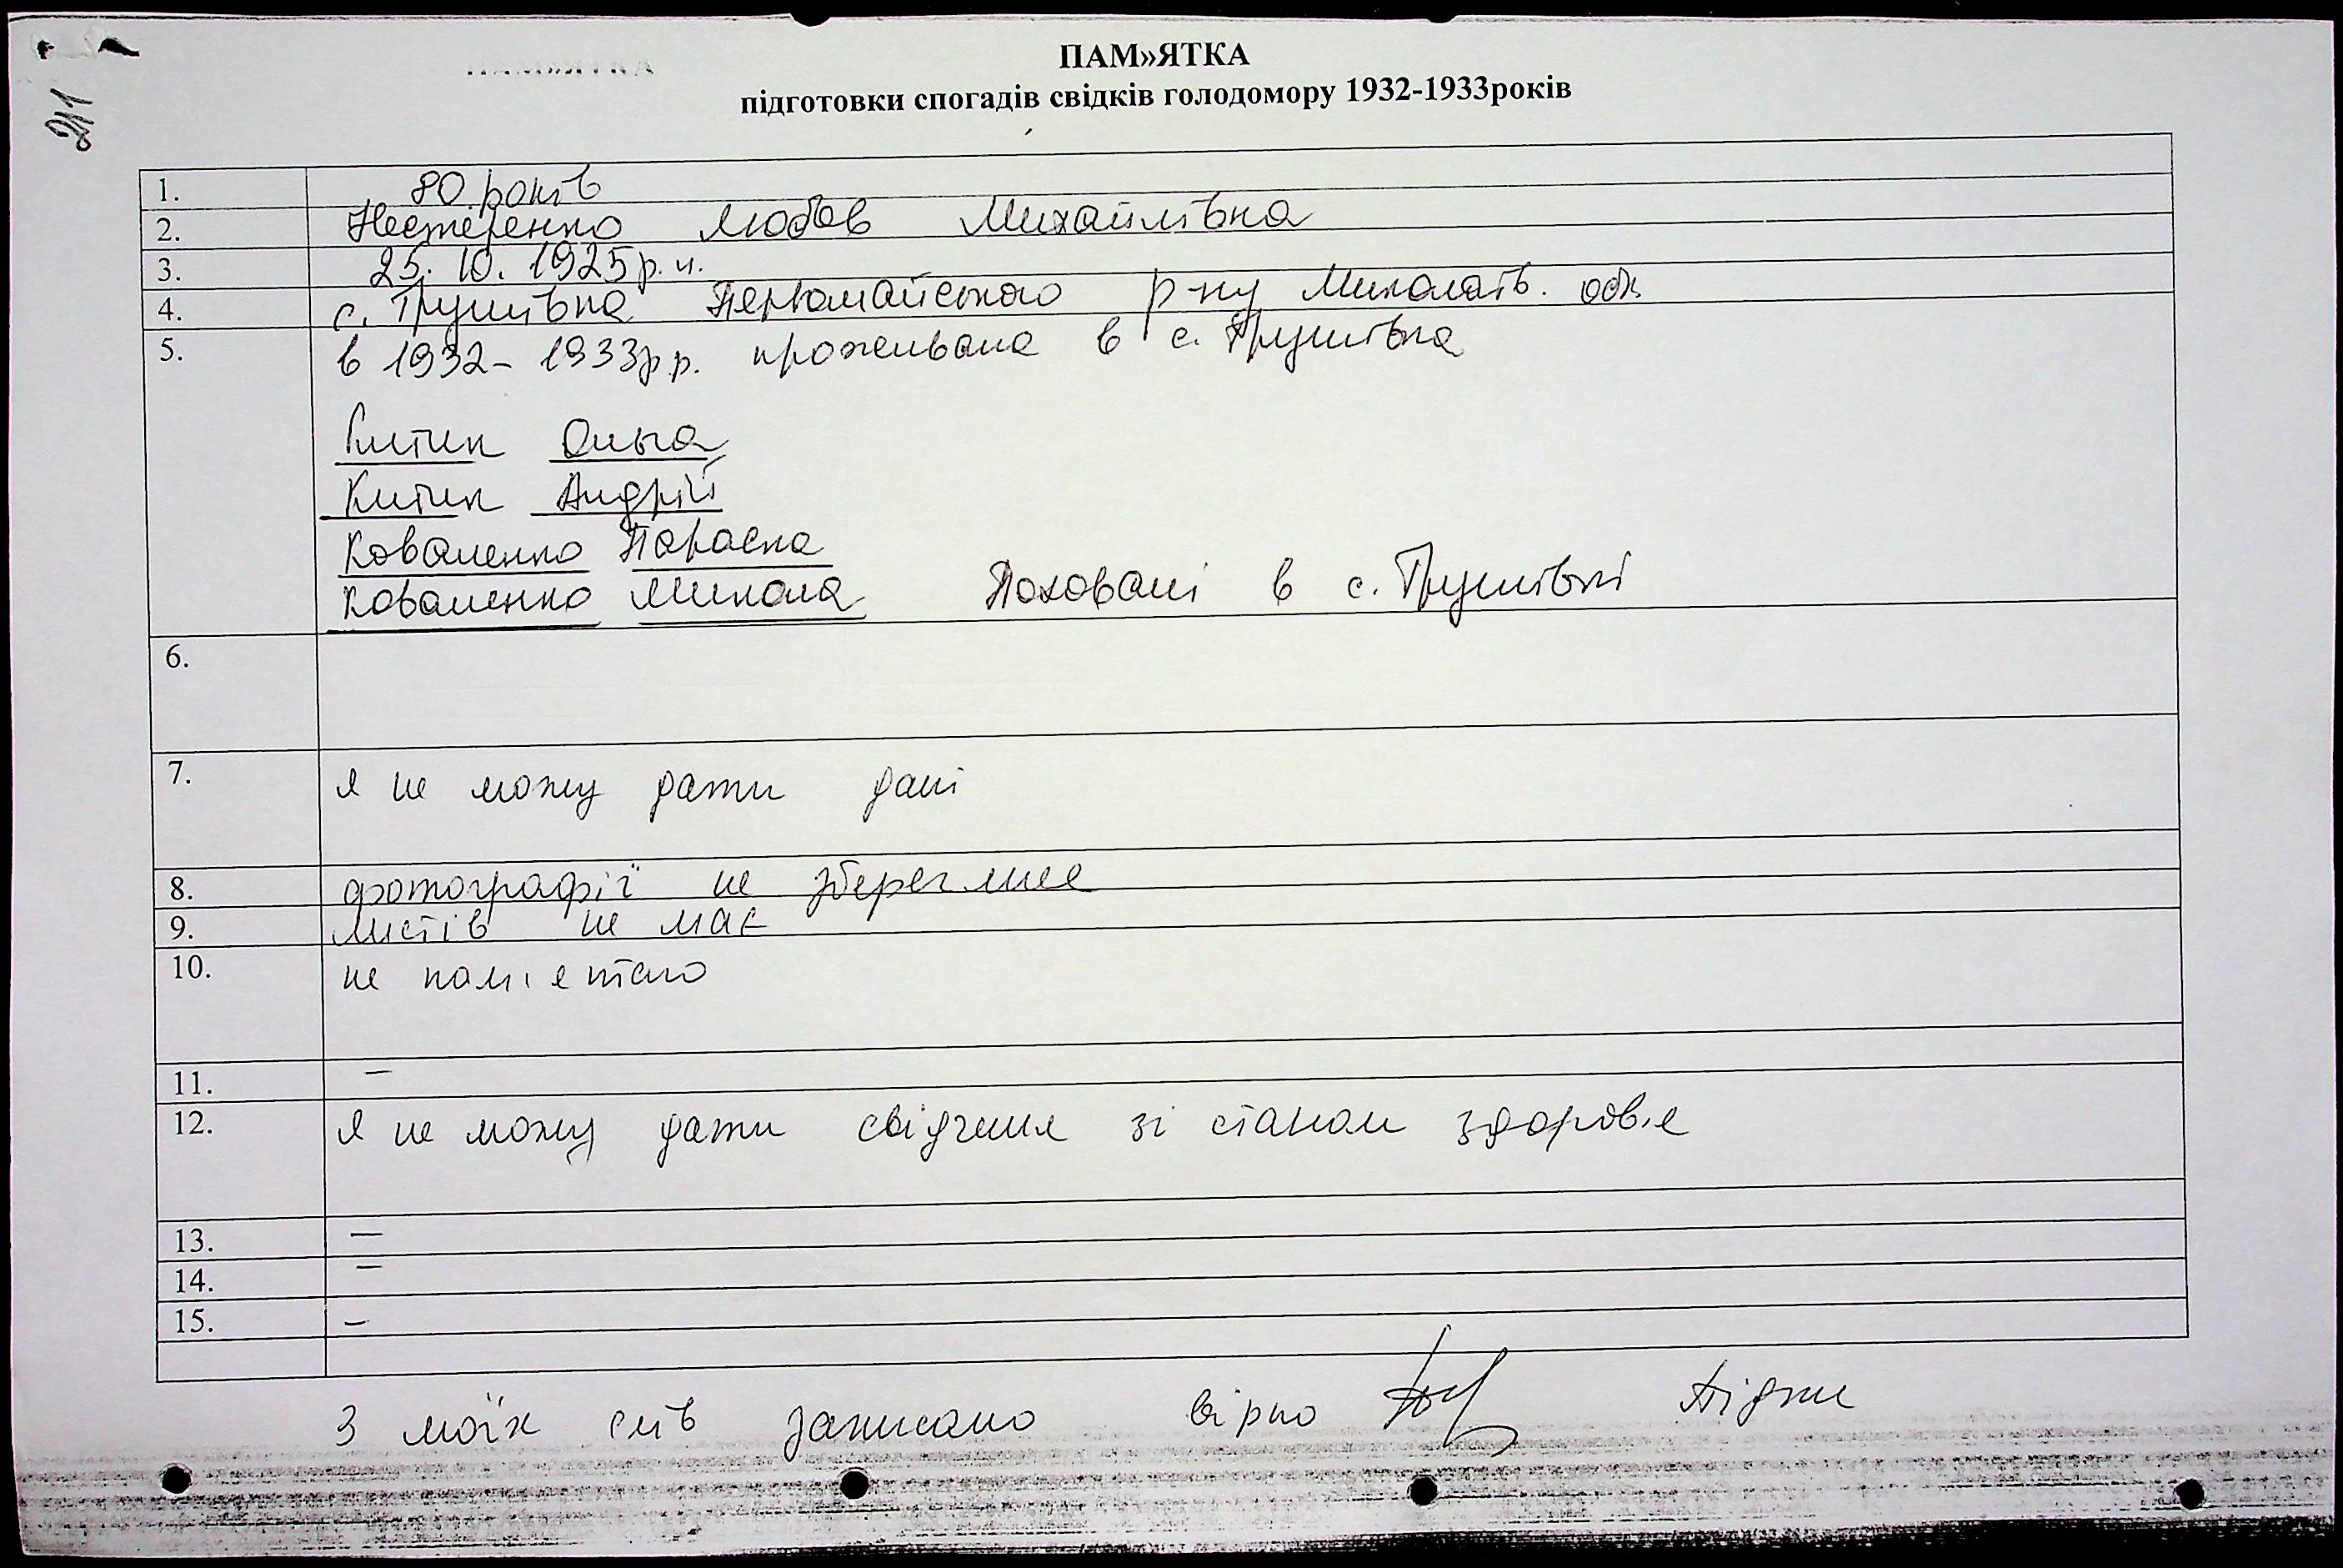 211
ПАМ»ЯТКА
підготовки спогадів свідків голодомору 1932-1933років
1. 80 років
2. Нестеренко Любов Михайлівна
3. 25. 10. 1925р.н.
4. с. Грушівка Первомайського р-ну Миколаїв. обл.
5. в 1932-1933р.р. проживала в с. Грушівка
Китик Ольга
Китик Андрій
Коваленко Параска
Коваленко Микола Поховані в с. Грушівкі
6.
7. я не можу дати дані
8. фотографії не збереглися
9. листів не має
10. не пам'ятаю
11. –
12. я не можу дати свідчення зі станом здоров'я
13. –
14. –
15. –
З моїх слів записано вірно Підпис